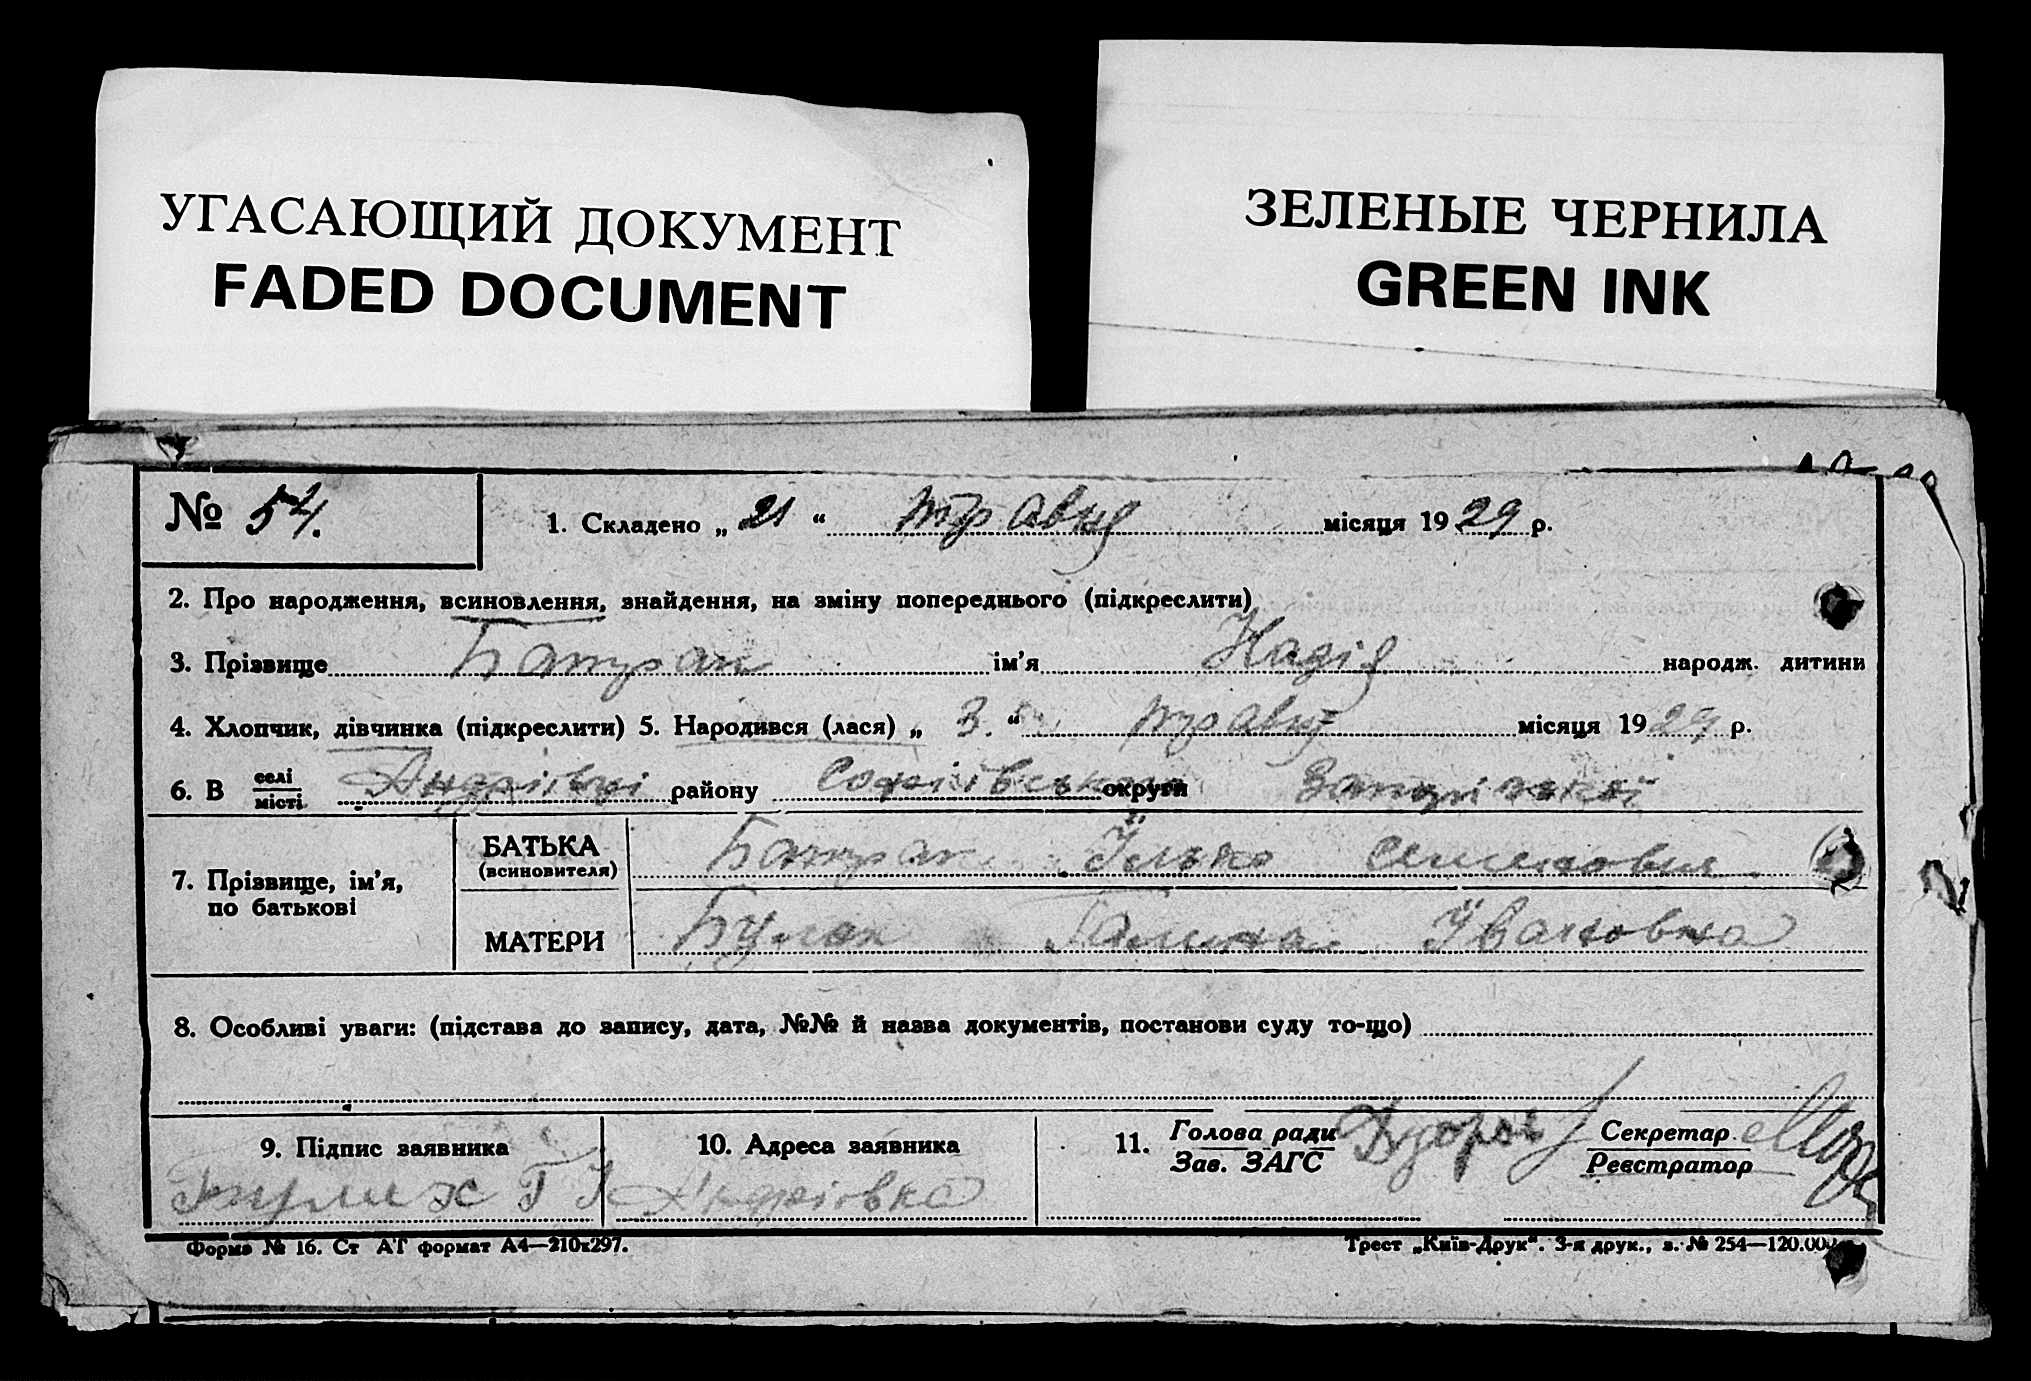 УГАСАЮЩИЙ ДОКУМЕНТ
FADED DOCUMENT
ЗЕЛЕНЫЕ ЧЕРНИЛА
GREEN INK
№ 54.
1. Складено „ 21 “ травня місяця 1929 р.
2. Про народження, всиновлення, знайдення, на зміну попереднього (підкреслити)
3. Прізвище Батрак ім’я Надія народж. дитини
4. Хлопчик, дівчинка (підкреслити) 5. Народився (лася) „ 3. “ травня місяця 1929 р.
6. В селі місті Андріївці району Софіївського округи Запорізької
7. Прізвище, ім’я, по батькові
БАТЬКА (всиновителя) Батрак Ілько Семенович
МАТЕРИ Галина Івановна
8. Особливі уваги: (підстава до запису, дата, №№ й назва документів, постанови суду то-що)
9. Підпис заявника
10. Адреса заявника
Андріовка
11. Голова ради
Зав. ЗАГС
Секретар
Реєстратор
Форма № 16. Ст АТ формат А4—210х297.
Трест „Київ-Друк“. 3-я друк., з. № 254—120.000